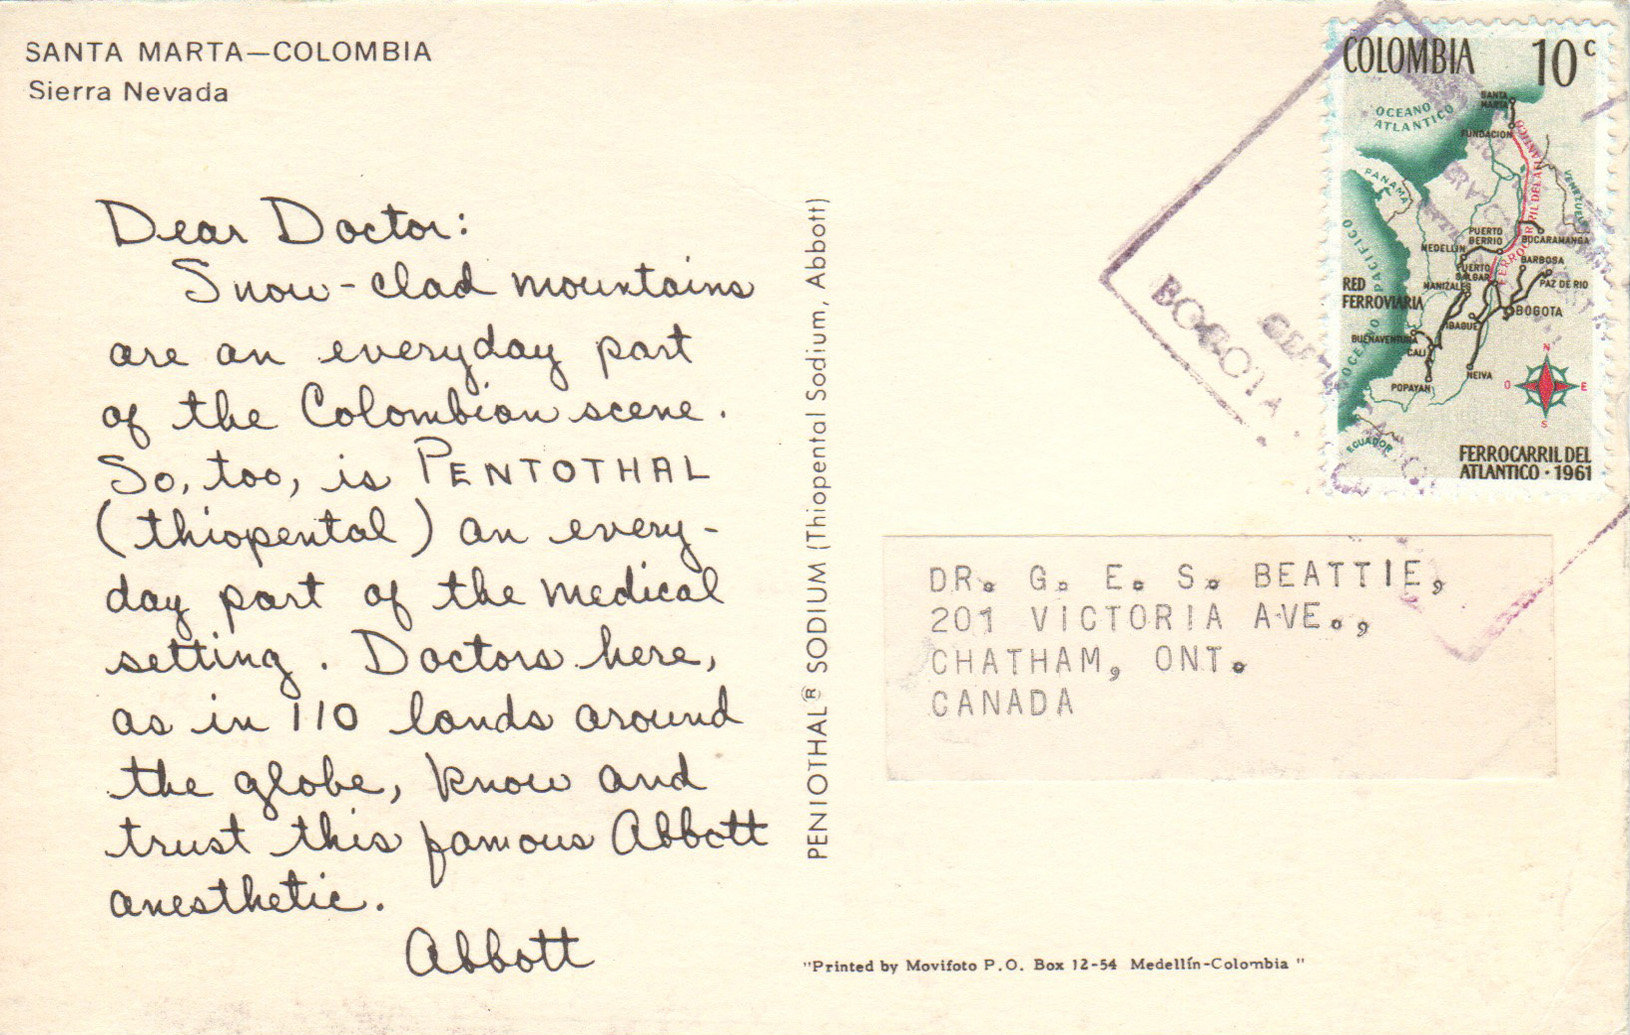 SANTA MARTA—COLOMBIA
Sierra Nevada
Dear Doctor:
Snow-clad mountains
are an everyday part
of the Colombian scene.
So, too, is PENTOTHAL
(thiopental) an every-
day part of the medical
setting. Doctors here,
as in 110 lands around
the globe, know and
trust this famous Abbott
anesthetic.
Abbott
PENIOTHAL® SODIUM (Thiopental Sodium, Abbott)
BOGOTA
COLOMBIA 10c
SANTA
MARTA
OCEANO
ATLANTICO
FUNDACION
PANAMA
VENEZUELA
FERROCARRIL DEL ATLANTICO
OCEANO PACIFICO
PUERTO
BERRIO
BUCARAMANGA
MEDELLIN
BARBOSA
PUERTO
SALGAR
PAZ DE RIO
MANIZALES
RED
FERROVIARIA
BOGOTA
IBAGUE
BUENAVENTURA
CALI
NEIVA
POPAYAN
N
O E
S
ECUADOR
FERROCARRIL DEL
ATLANTICO · 1961
DR. G. E. S. BEATTIE,
201 VICTORIA AVE.,
CHATHAM, ONT.
CANADA
"Printed by Movifoto P.O. Box 12-54 Medellín-Colombia "